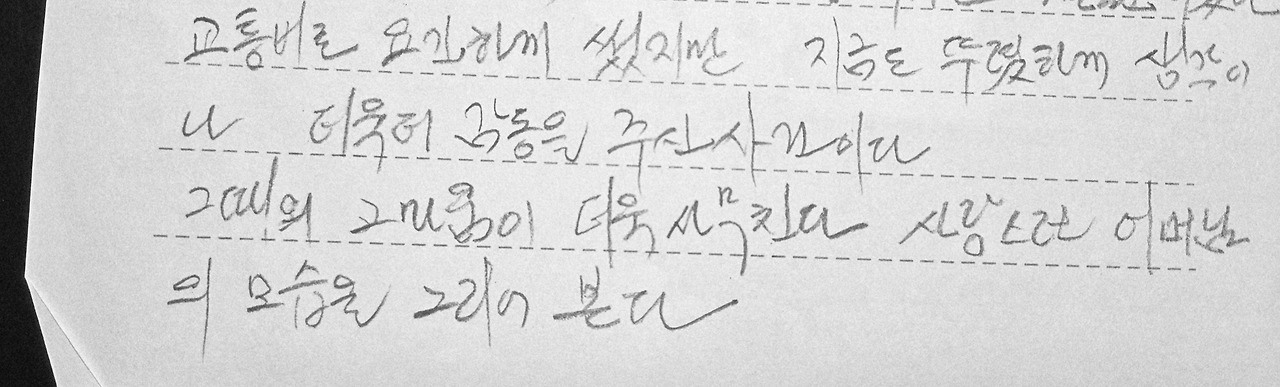 교통비로 요긴하게 썼지만 지금도 뚜렷하게 생각이
나 더욱더 감동을 주신 사건이다
그때의 그리움이 더욱 사무친다 사랑스런 어머님
의 모습을 그리어 본다